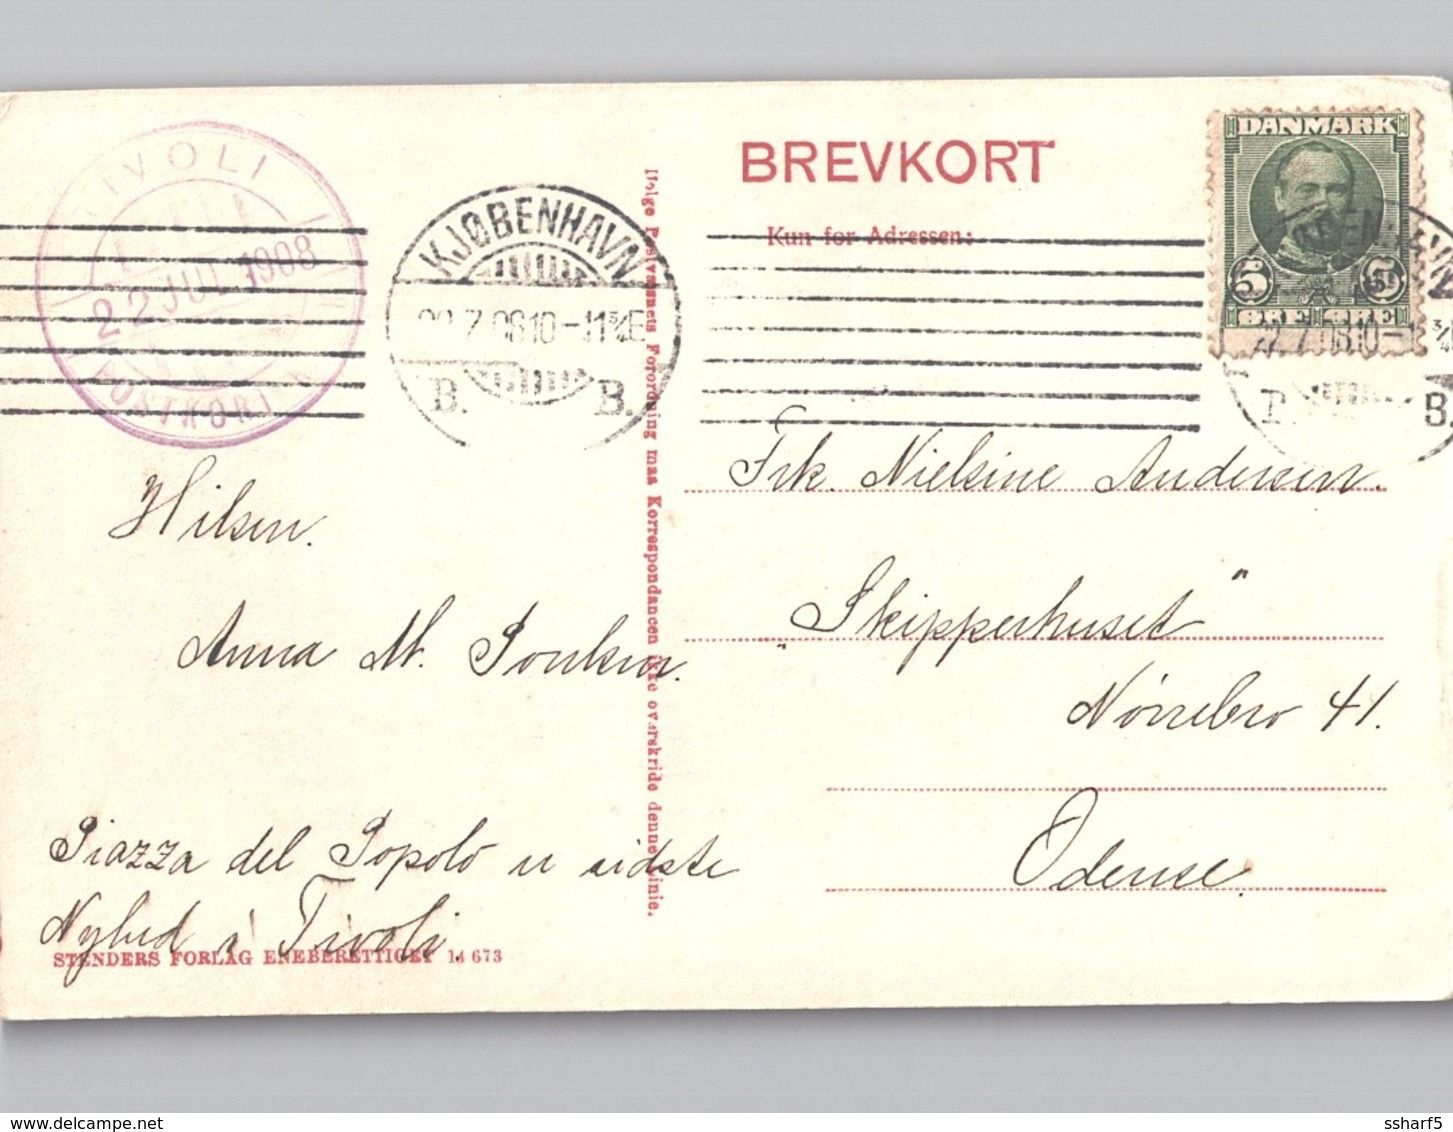 TIVOLI
22 JUL. 1908
POSTKORT
KJØBENHAVN
22.7.08 10-11¾E
B. B.
BREVKORT
Kun for Adressen:
DANMARK
5 5
ØRE ØRE
22.7.0810-1
B.
Ifølge Postvæsnets Forordning maa Korrespondancen ikke overskride denne Linie.
Frk. Nielsine Andersen.
"Skipperhuset"
Nörrebro 41.
Odense.
Hilsen.
Anna M. Poulsen.
Piazza del Popolo er sidste
Nyhed i Tivoli.
STENDERS FORLAG ENEBERETTIGET 14 673
ssharf5